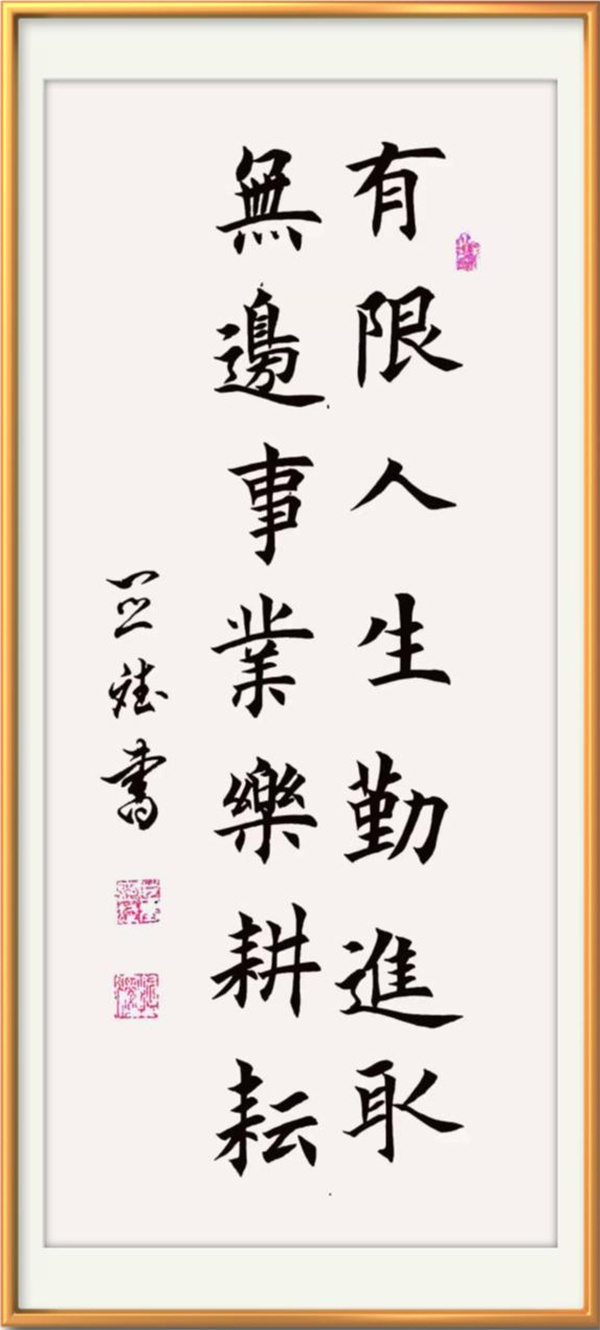 有限人生勤進取
無邊事業樂耕耘
斌書